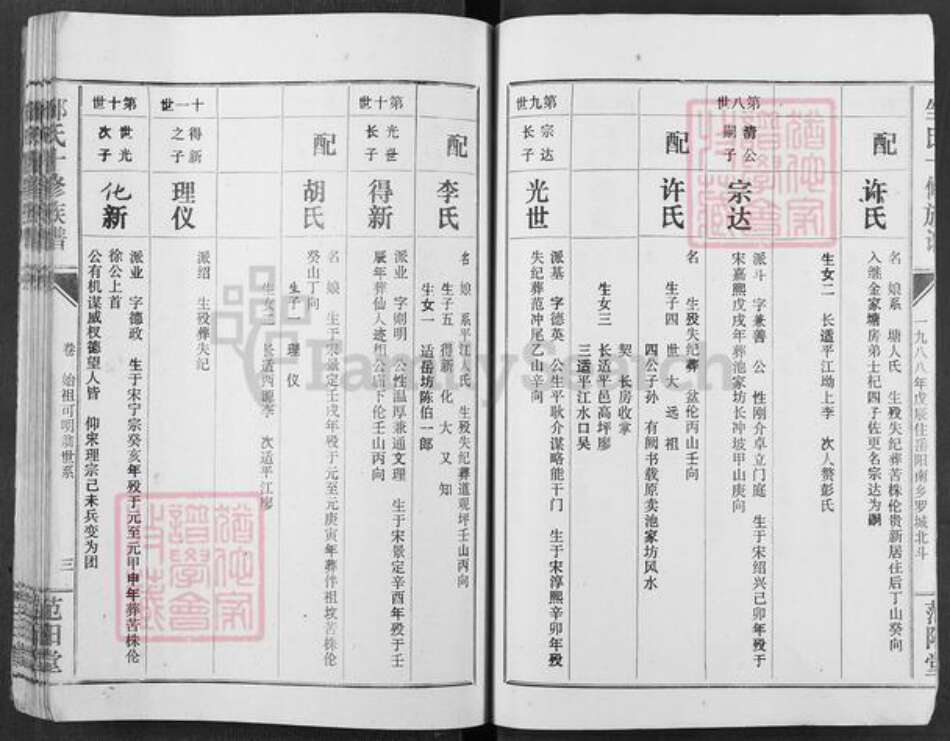 一九八八年戊辰住岳阳南乡罗城北斗
范阳堂
配
许氏
名 娘系 塘人氏 生殁失纪葬苦株伦贵新居住后丁山癸向
入继金家塘房弟士杞四子佐更名宗达为嗣
生女二 长适平江坳上李 次人赘彭氏
第八世
清公
嗣子
宗达
派斗 字兼善 公 性刚介卓立门庭 生于宋绍兴己卯年殁于
宋嘉熙戊戌年葬池家坊长冲坡甲山庚向
配
许氏
名 生殁失纪葬 盆伦丙山壬向
生子四 世 大 远 祖
四公子孙 有阄书载原卖池家坊风水
契 长房收掌
生女三 长适平邑高坪廖
三适平江水口吴
第九世
宗达
长子
光世
派基 字德英 公生平耿介谋略能干门 生于宋淳熙辛卯年殁
失纪葬范冲尾乙山辛向
配
李氏
名 娘 系平江人氏 生殁失纪葬道观坪壬山丙向
生子五 得新 化 大 又 知
生女一 适岳坊陈伯一郎
第十世
光世
长子
得新
派业 字则明 公性温厚兼通文理 生于宋景定辛酉年殁于壬
辰年葬仙人迹相公庙下伦壬山丙向
配
胡氏
名 娘 生于宋景定壬戌年殁于元至元庚寅年葬伴祖坟苦株伦
癸山丁向
生子一 理仪
生女二 长适西源李 次适平江廖
十一世
得新
之子
理仪
派绍 生殁葬失纪
第十世
世光
次子
化新
派业 字德政 生于宋宁宗癸亥年殁于元至元甲申年葬苦株伦
徐公上首
公有机谋威权德望人皆 仰宋理宗己未兵变为团
氏十修族谱
卷 始祖可明翁世系
三
范阳堂
FamilySearch